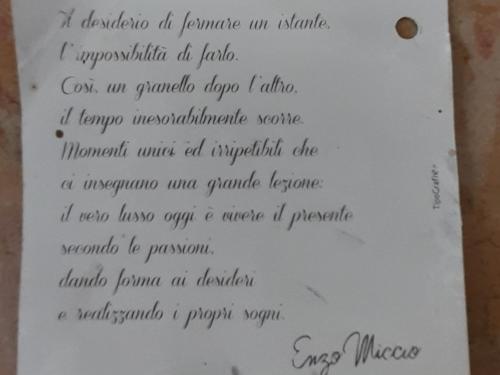 Il desiderio di fermare un istante,
l'impossibilità di farlo.
Così, un granello dopo l'altro,
il tempo inesorabilmente scorre.
Momenti unici ed irripetibili che
ci insegnano una grande lezione:
il vero lusso oggi è vivere il presente
secondo le passioni,
dando forma ai desideri
e realizzando i propri sogni.
Enzo Miccio
TipoGrafie